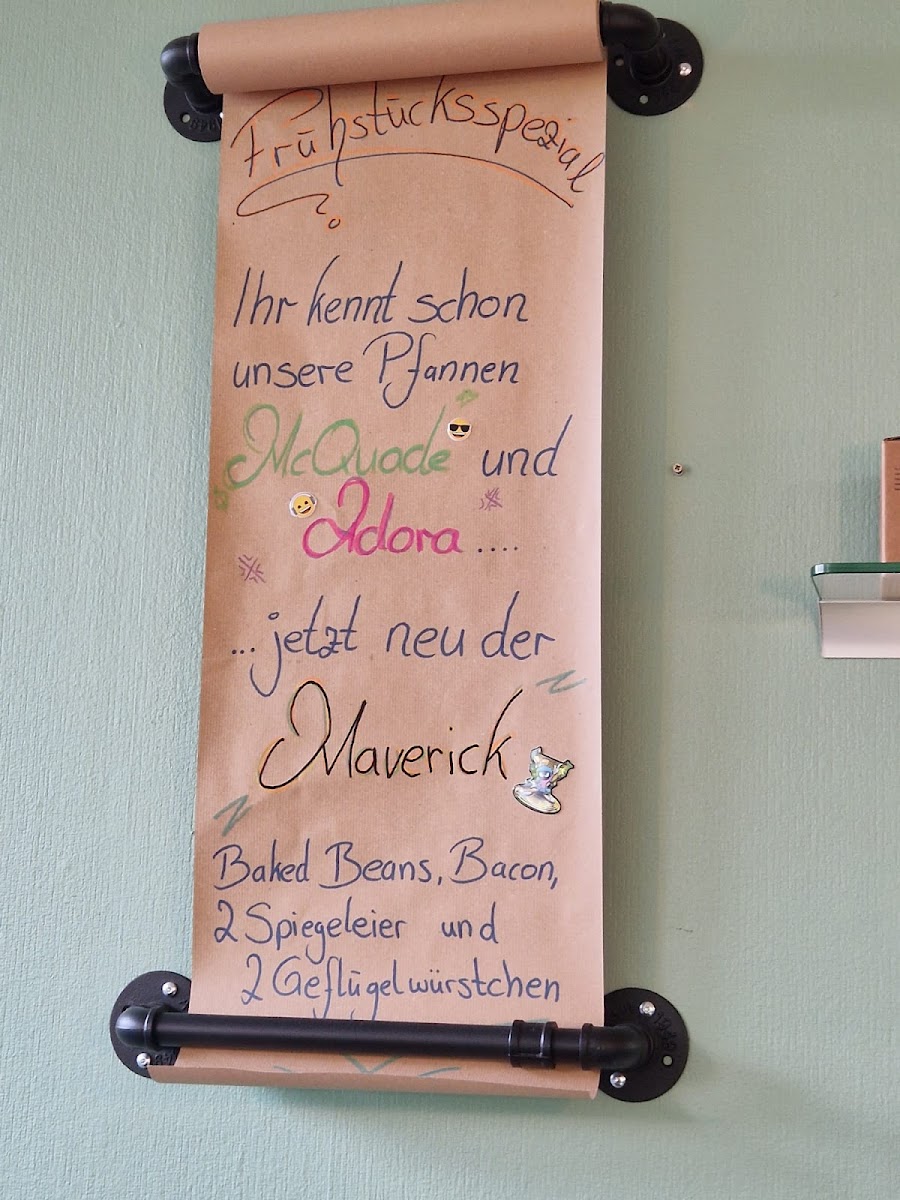 Frühstücksspezial
Ihr kennt schon
unsere Pfannen
"McQuade" und
Adora....
...jetzt neu der
Maverick
Baked Beans, Bacon,
2 Spiegeleier und
2 Geflügelwürstchen